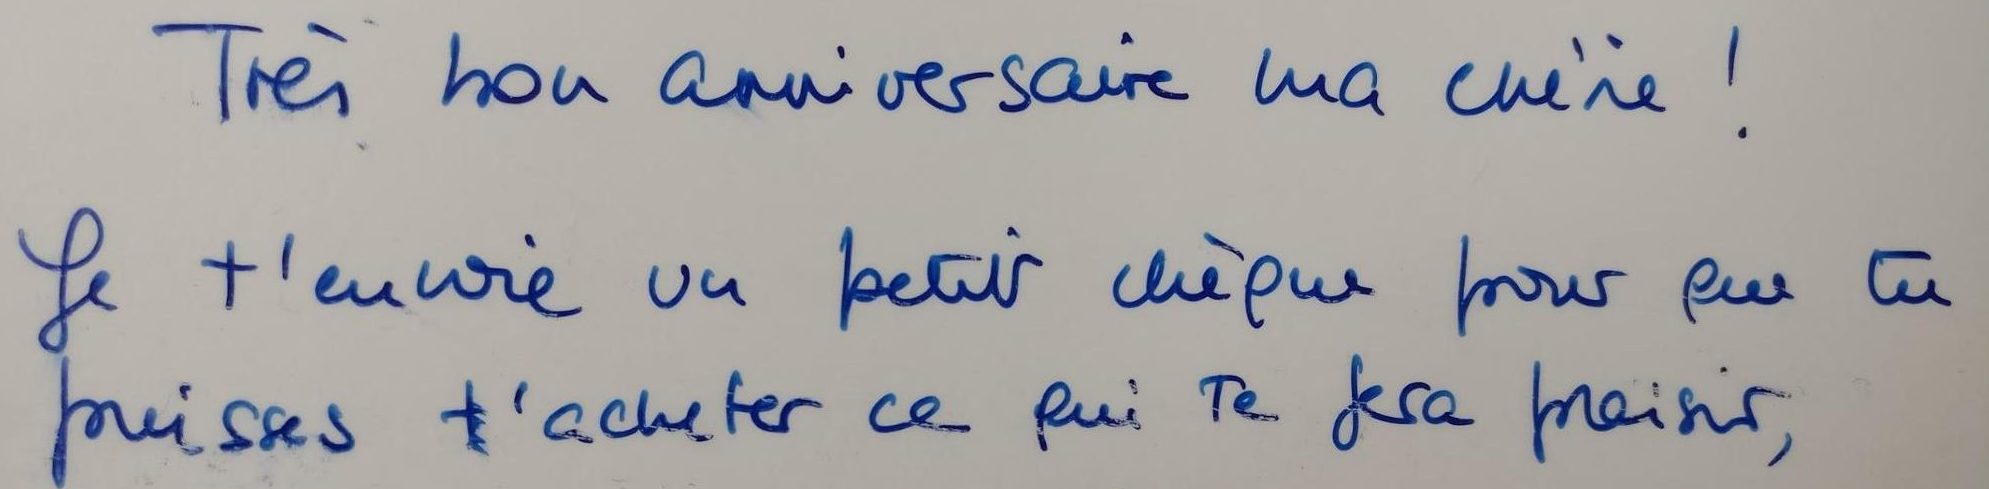 Très bon anniversaire ma chérie !
Je t'envoie un petit chèque pour que tu
puisses t'acheter ce qui te fera plaisir,